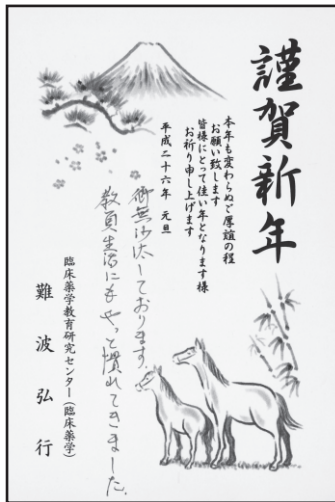 謹賀新年
本年も変わらぬご厚誼の程
お願い致します
皆様にとって佳い年となります様
お祈り申し上げます
平成二十六年 元旦
御無沙汰しております。
教員生活にもやっと慣れてきました。
臨床薬学教育研究センター(臨床薬学)
難波弘行